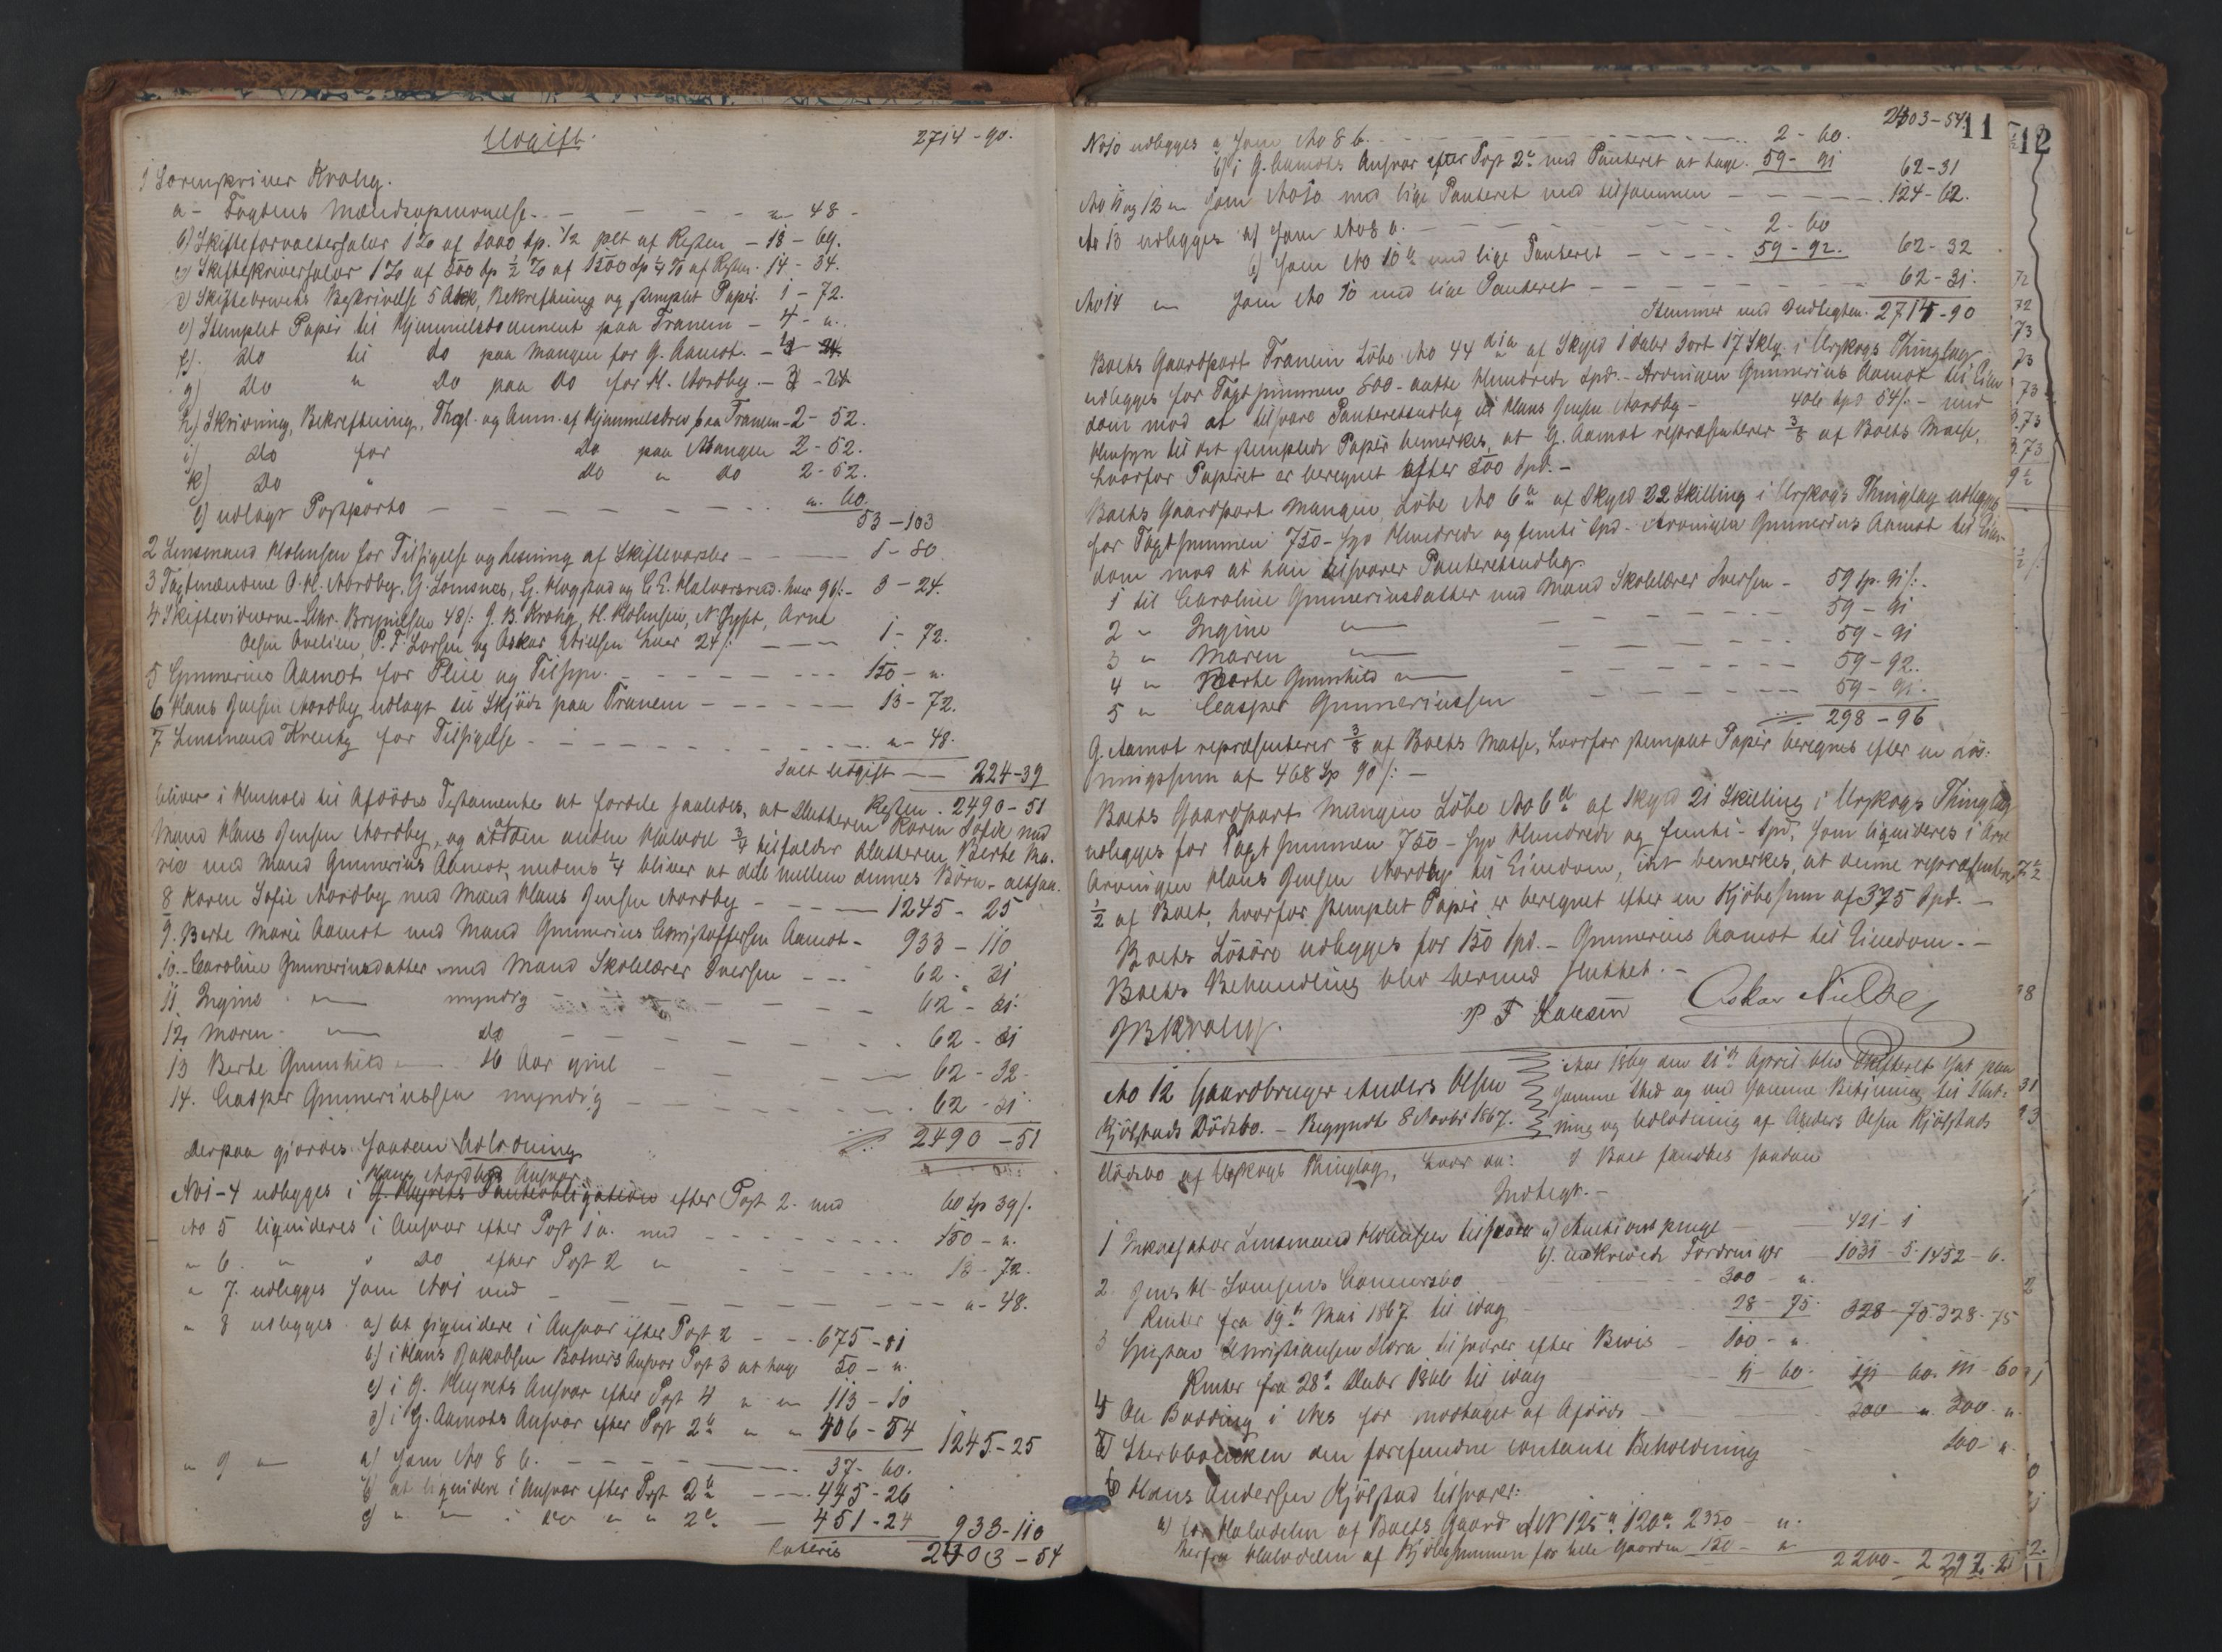 Udgift. 2714-90.
1 Sorenskriver Krohg.
a - Fogdens Mandsopnævnelse - " 48 -
b) Skifteforvaltersalær 1% af 1000 Sp. 1/2 pCt af Resten - 18 - 69.
c) Skifteskriversalær 1% af 500 Sp 1/2 % af 1500 Sp 1/4 % af Resten - 14 - 34.
d) Skiftebrevets Beskrivelse 5 Ark, Bekreftning og stemplet Papir - 1 - 72.
e) Stemplet Papir til Hjemmelsdocument paa Tranem - 4 - ".
f). do til do paa Mangen for G. Aamot. - 3 - 24
g) do " do paa do for H. Nordby. - 3 - 24
h) Skrivning, Bekreftning, Thgl. og Anm. af Hjemmelsbrev paa Tranem - 2 - 52.
i) do for do paa Mangen 2 - 52.
k) do " do " do 2 - 52.
l) udlagt Postporto - ". 60.
53 - 103
2 Lensmand Holmsen for Tilsigelse og læsning af Skiftevarsler - 1 - 80
3 Taxtmændene O. H. Nordby, G. Lomsnes, G. Hogstad og C. E. Halvorsrud hver 96/:- 3 - 24.
4 Skiftevidnerne - Chr. Brynilsen 48/: J. B. Krohg, H. Holmsen, N. Gyst, Arne
Olsen Avelien, P. F. Larsen og Oskar Nielsen hver 24/: - 1 - 72.
5 Gunnerius Aamot for Pleie og Tilsyn. - 150 - ".
6 Hans Jensen Nordby udlagt til Skjøde paa Tranem - 13 - 72.
7 Lensmand Kreutz for Tilsigelse - " - 48.
Ialt Udgift - 224-39
Resten. 2490-51
bliver i Henhold til Afdødes Testamente at fordele saaledes, at Datteren Karen Sofie med
Mand Hans Jensen Nordby, og at den anden Halvdel 3/4 tilfalder Datteren Berte Ma-
rie med Mand Gunnerius Aamot, medens 1/4 bliver at dele mellem dennes Børn - altsaa.
8 Karen Sofie Nordby med Mand Hans Jensen Nordby - 1245 - 25
9. Berte Marie Aamot med Mand Gunnerius Christoffersen Aamot - 933 - 110
10. - Caroline Gunneriusdatter med Mand Skolelærer Iversen - 62 - 31
11 Ingine " myndig - 62 - 31.
12. Maren " do - 62 - 31
13 Berte Gunnhild " 16 Aar gml - 62 - 32 -
14. Casper Gunneriussen myndig - 62 - 31.
2490 - 51
Derpaa gjordes saadan Udlodning
Hans Nordbys Ansvar
No 1-4 udlegges i G. Heyrets Panteobligation efter Post 2. med 60 Sp 39/.
No 5 liquideres i Ansvar efter Post 1 a. med - 150 - ".
" 6. " " do efter Post 2 " - 13 - 72.
" 7. udlegges som No 1 med - " - 48.
" 8 udlegges. a) at liquidere i Ansvar efter Post 2 - 675 - 81
b) i Hans Jakobsen Botners Ansvar Post 3 at hæve 50 - ".
c) i G. Heyrets Ansvar efter Post 4 " " 113 - 10
d) i G. Aamots Ansvar efter Post 2 a " " 406 - 54 1245-25
" 9 " a) som No 8 b. - 37 - 60.
b) at liquidere i Ansvar efter Post 2 b - 445 - 26
c) " " " do " " 2 c - 451 - 24 933-110
Lateris 2303 - 54
2303-54 11 12
No 10 udlegges a) som No 8 b. - 2 - 60.
b) i G. Aamots Ansvar efter Post 2 a med Panteret at hæve. 59 - 91 62-31
No 11 og 12 " som No 10 med lige Panteret med tilsammen - 124-62.
No 13 udlegges a) som No 8 b. - 2 - 60
b) som No 10 b med lige Panteret - 59 - 92. 62-32
No 14 " som No 10 med lige Panteret - 62-31.
Stemmer med Indtegten. 2714-90
Boets Gaardpart Tranem Løbe No 44 af Skyld 1 Daler 3 ort 17 Sklg. i Urskogs Thinglag
udlegges for Taxtsummen 800 - aatte Hundrede Spd. - Arvingen Gunnerius Aamot til Eien
dom mod at tilsvare Panteretsudlæg til Hans Jensen Nordby - 406 Spd 54/: - med
Hensyn til det stemplede Papir bemerkes, at G. Aamot repræsenterer 3/8 af Boets Masse,
hvorfor Papiret er beregnet efter 500 Spd. -
Boets Gaardpart Mangen, Løbe No 6 a af Skyld 22 Skilling i Urskogs Thinglag udlegges
for Taxtsummen 750 - syv Hundrede og femti Spd - Arvingen Gunnerius Aamot til Eien-
dom mod at han tilsvarer Panteretsudlæg.
1 til Caroline Gunneriusdatter med Mand Skolelærer Iversen - 59 Sp. 91/:.
2 " Ingine " - 59 - 91
3 " Maren " - 59 - 91
4 " Berte Gunnhild " - 59 - 92.
5 " Casper Gunneriussen - 59 - 91.
298 - 96
G. Aamot repræsenterer 3/8 af Boets Masse, hvorfor stemplet Papir beregnes efter en Løs-
ningssum af 468 Sp 90/: -
Boets Gaardpart Mangen Løbe No 6 b af Skyld 21 Skilling i Urskogs Thinglag
udlegges for Taxtsummen 750 - syv Hundrede og femti - Spd, som liquideres i Arv
Arvingen Hans Jensen Nordby til Eiendom, idet bemerkes, at denne repræsenterer
1/2 af Boet, hvorfor stemplet Papir er beregnet efter en Kjøbesum af 375 Spd. -
Boets Løsøre udlegges for 150 Spd. - Gunnerius Aamot til Eiendom. -
Boets Behandling blev hermed sluttet. -
JBKrohg. P F Larsen Oskar Nielsen
No 12 Gaardbruger Anders Olsen
Kjølstads Dødsbo. - Begyndt 8 Novbr 1867.
Aar 1869 den 21de April blev Skifteret sat paa
samme Sted og med samme Betjening til Slut-
ning og Udlodning af Anders Olsen Kjølstads
Dødsbo af Urskogs Thinglag, hvor da: I Boet fandtes saadan
Indtegt. -
1 Inkassator Lensmand Holmsen tilsvarer a) Auctionspenge - 421 - 1
b). indkrevede Fordringer - 1031 - 5. 1452-6.
2. Jens H. Lomsnes - 300 - ".
Renter fra 19de Mai 1867 til idag 28 - 75. 328-75. 328-75
3 Gustav Christiansen Hora tilsvarer efter Bevis - 100 - ".
Renter fra 28de 1866 til idag - 11 - 60. 111 60. 111-60
4 Ole Bodding i Nes for modtaget af Afdøde - 200 ". 200. ".
5 Sterbboenken den forefundne contante Beholdning 100 - ".
6 Hans Andersen Kjølstad tilsvarer:
a) for Halvdelen af Boets Gaard LN 125 a, 120 a 2350 - ".
herfra Halvdelen af Kjøbesummen for hele Gaarden 150 - " 2200 -